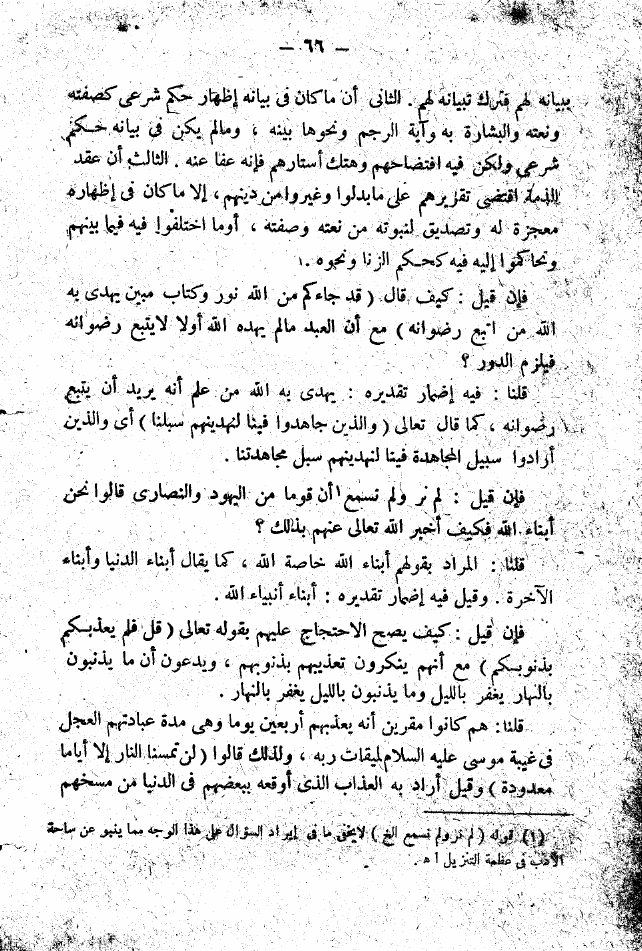 — ٦٦ —
ببيانه لهم فترك تبيانه لهم . الثانى أن ما كان فى بيانه إظهار حكم شرعى كصفته
ونعته والبشارة به وآية الرجم ونحوها بينه ، ومالم يكن فى بيانه حكم
شرعى ولكن فيه افتضاحهم وهتك أستارهم فإنه عفا عنه . الثالث أن عقد
الذمة اقتضى تقريرهم على مابدلوا وغيروا من دينهم ، إلا ما كان فى إظهاره
معجزة له وتصديق لنبوته من نعته وصفته ، أوما اختلفوا فيه فيما بينهم
وتحاكموا إليه فيه كحكم الزنا ونحوه .
فإن قيل : كيف قال ( قد جاءكم من الله نور وكتاب مبين يهدى به
الله من اتبع رضوانه ) مع أن العبد مالم يهده الله أولا لايتبع رضوانه
فيلزم الدور ؟
قلنا : فيه إضمار تقديره : يهدى به الله من علم أنه يريد أن يتبع
رضوانه ، كما قال تعالى ( والذين جاهدوا فينا لنهدينهم سبلنا ) أى والذين
أرادوا سبيل المجاهدة فينا لنهدينهم سبل مجاهدتنا .
فإن قيل : لم نر ولم نسمع ١ أن قوما من اليهود والنصارى قالوا نحن
أبناء الله فكيف أخبر الله تعالى عنهم بذلك ؟
قلنا : المراد بقولهم أبناء الله خاصة الله ، كما يقال أبناء الدنيا وأبناء
الآخرة . وقيل فيه إضمار تقديره : أبناء أنبياء الله .
فإن قيل : كيف يصح الاحتجاج عليهم بقوله تعالى ( قل فلم يعذبكم
بذنوبكم ) مع أنهم ينكرون تعذيبهم بذنوبهم ، ويدعون أن ما يذنبون
بالنهار يغفر بالليل وما يذنبون بالليل يغفر بالنهار .
قلنا : هم كانوا مقرين أنه يعذبهم أربعين يوما وهى مدة عبادتهم العجل
فى غيبة موسى عليه السلام لميقات ربه ، ولذلك قالوا ( لن تمسنا النار إلا أياما
معدودة ) وقيل أراد به العذاب الذى أوقعه ببعضهم فى الدنيا من مسخهم
(١) قوله ( لم نر ولم نسمع الخ ) لايخفى ما فى إيراد السؤال على هذا الوجه مما ينبو عن ساحة
الأدب فى عظمة التنزيل اهـ .